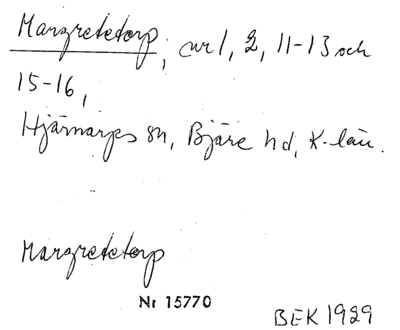 Margretetorp, nr 1, 2, 11-13 och
15-16,
Hjärnarps sn, Bjäre hd, K-län.
Margretetorp
Nr 15770
BEK 1929